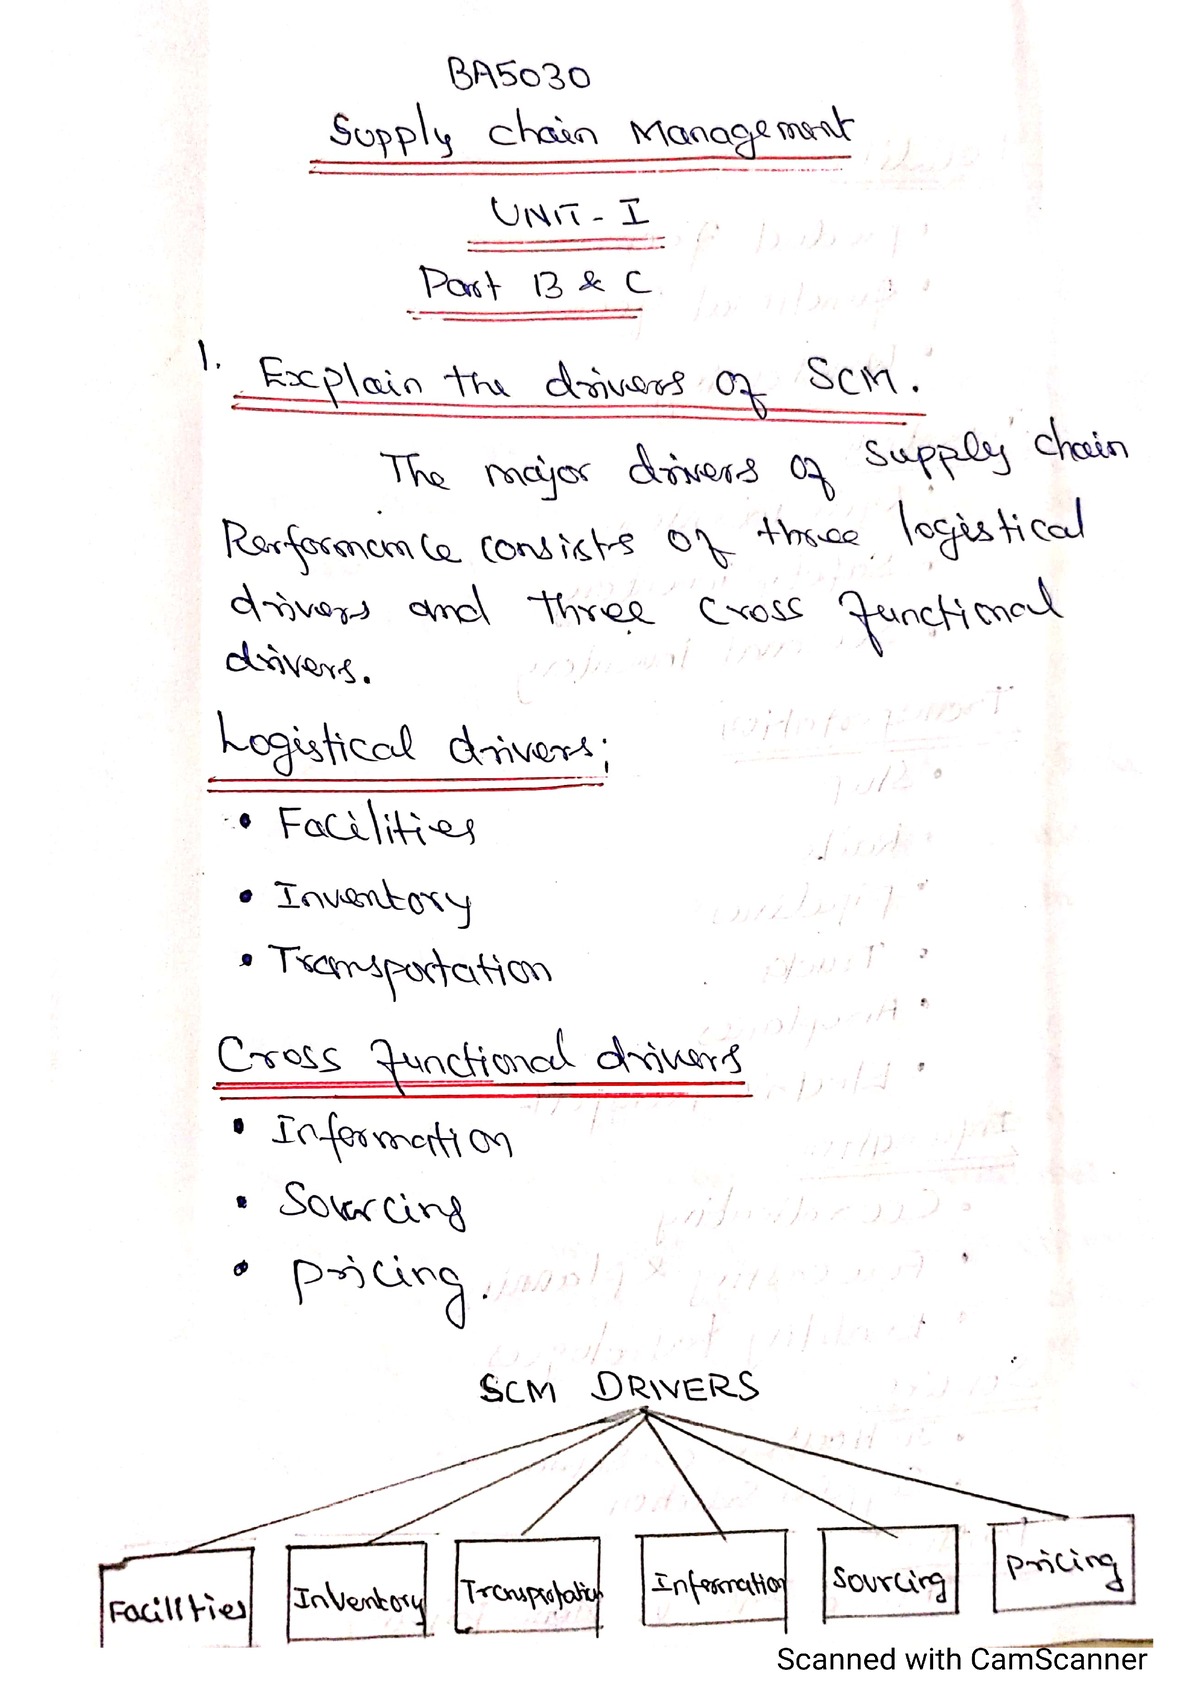 BA5030
Supply chain Management
UNIT - I
Part B & C
1. Explain the drivers of SCM.
The major drivers of supply chain
Performance consists of three logistical
drivers and three cross functional
drivers.
Logistical drivers;
• Facilities
• Inventory
• Transportation
Cross functional drivers
• Information
• Sourcing
• pricing.
SCM DRIVERS
Facilities Inventory Transportation Information Sourcing pricing
Scanned with CamScanner